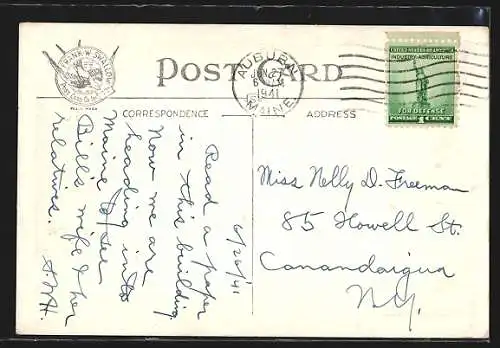 POST CARD
AUBURN
JUN 27
1941
MAINE
UNITED STATES
INDUSTRY·AGRICULTURE
FOR DEFENSE
POSTAGE 1 CENT
CORRESPONDENCE
ADDRESS
6/26/41
Read a paper
in this building.
Now we are
heading into
Maine to see
Bill's wife & her
relatives.
Miss Nelly D. Freeman
85 Howell St.
Canandaigua
N.Y.